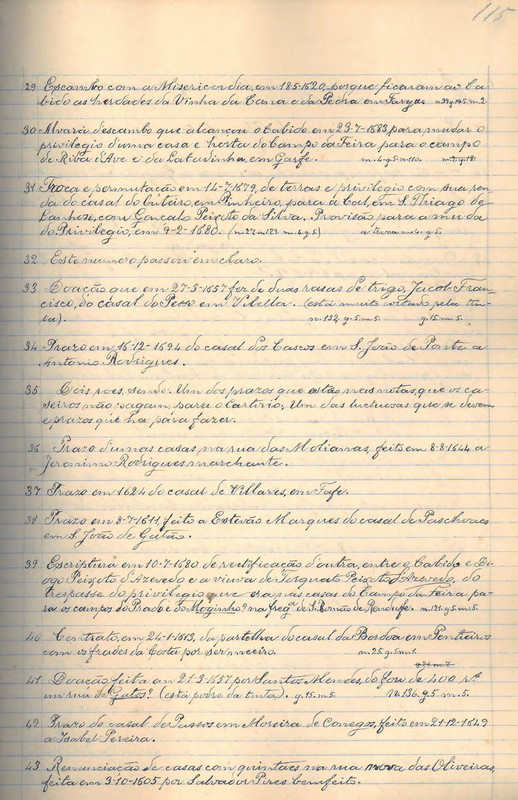 115
29 Escambo com a Misericordia, em 18-5-1620, porque ficaram ao Ca-
bido as herdades da Vinha da Cana e da Pedra em
30 Alvará descambo que alcançou o Cabido em 23-7-1683 para mudar o
privilegio duma casa e horta do Campo da Feira para o campo
de Riba d'Ave e da Latadinha, em Garfe. m. 4. g. 5 n. 110.
31 Troca e permutação em 14-7-1679, de terras e privilegio com sua ren-
da do casal do Outeiro, em Pinheiro, para o Cal, em S. Thiago de
Lanhoso, com Gonçalo Peixoto da Silva. Provisão para a muda
do Privilegio, em 9-2-1680.
32 Este numero passou em claro.
33 Doação que em 27-3-1657 fez de duas rasas de trigo, Jacob Fran-
cisco, do casal do Pezo em Vilella. (está muito voltado pela tin-
ta). n. 132. g. 5 m. 5. g. 15 m. 5.
34 Prazo em 16-12-1694 do casal dos Cascos em S. João de Ponte a
Antonio Rodrigues.
35 Dois roes, sendo: Um dos prazos que estão nas notas, que os ca-
seiros não pagam, para o Cartorio; Um das luctuosas que se devem
e prazos que ha para fazer.
36 Prazo dumas casas na rua das Molianas, feito em 8-8-1644 a
Jeronimo Rodrigues marchante.
37 Prazo em 1624 do casal de Villares, em Fafe.
38 Prazo em 8-7-1611, feito a Estevão Marques do casal de Paschoaes
em S. João de Gatão.
39 Escriptura em 10-7-1680 de rectificação d'outra, entre o Cabido e Di-
ogo Peixoto d'Azevedo e a viuva de Torquato Peixoto d'Azevedo, do
trespasse do privilegio que era nas casas do Campo da Feira pa-
ra os campos do Prado e do Moginho? na freg.ª de S. Romão de Rendufe. n. 131. g. 5 m. 5
40 Contrato, em 24-1-1613, da partelha do casal da Bordoa em Penteiros
com os frades da Costa por ser meeiro. m. 25. g. 5 m. 1.
41 Doação feita em 21-3-1657 por Santos Mendes, do foro de 400 r.s
em rua de Gatos? (está podre da tinta). g. 15 m. 5. n. 136. g. 5 m. 5.
42 Prazo do casal de Pussos em Moreira de Conegos, feito em 21-12-1649
a Isabel Pereira.
43 Renunciação de casas com quintaes na rua nova das Oliveiras,
feita em 3-10-1605 por Salvador Pires bemfeito.